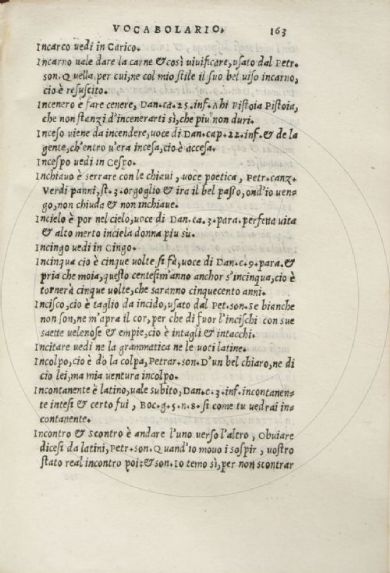 VOCABOLARIO. 163
Incarco uedi in Carico.
Incarno uale dare la carne & così uiuificare, usato dal Petr.
son. Quella per cui, ne col mio stile il suo bel uiso incarno,
cio è resuscito.
Incenero e fare cenere, Dan. ca. 25. inf. Ahi Pistoia Pistoia,
che non stanzi d'incenerarti sì, che piu non duri.
Inceso uiene da incendere, uoce di Dan. cap. 22. inf. & de la
gente, ch'entro u'era incesa, cio è accesa.
Incespo uedi in Cespo.
Inchiauo è serrare con le chiaui, uoce poetica, Petr. canz.
Verdi panni, st. 3. orgoglio & ira il bel passo, ond'io uen-
go, non chiuda & non inchiaue.
Incielo è por nel cielo, uoce di Dan. ca. 3. para. perfetta uita
& alto merto inciela donna piu su.
Incingo uedi in Cingo.
Incinqua cio è cinque uolte si fà, uoce di Dan. c. 9. para. &
pria che moia, questo centesim'anno anchor s'incinqua, cio è
tornerà cinque uolte, che saranno cinquecento anni.
Incisco, cio è taglio da incido, usato dal Pet. son. Se bianche
non son, ne m'apra il cor, per che di fuor l'incischi con sue
saette uelenose & empie, cio è intagli & intacchi.
Incitare uedi ne la grammatica ne le uoci latine.
Incolpo, cio è dò la colpa, Petrar. son. D'un bel chiaro, ne di
cio lei, ma mia uentura incolpo.
Incontanente è latino, uale subito, Dan. c. 3. inf. incontanen-
te intesi & certo fui, Boc. g. 5. n. 8. si come tu uedrai in-
contanente.
Incontro & Scontro è andare l'uno uerso l'altro, Obuiare
dicesi da latini, Petr. son. Quand'io mouo i sospir, uostro
stato real incontro poi: & son. Io temo sì, per non scontrar